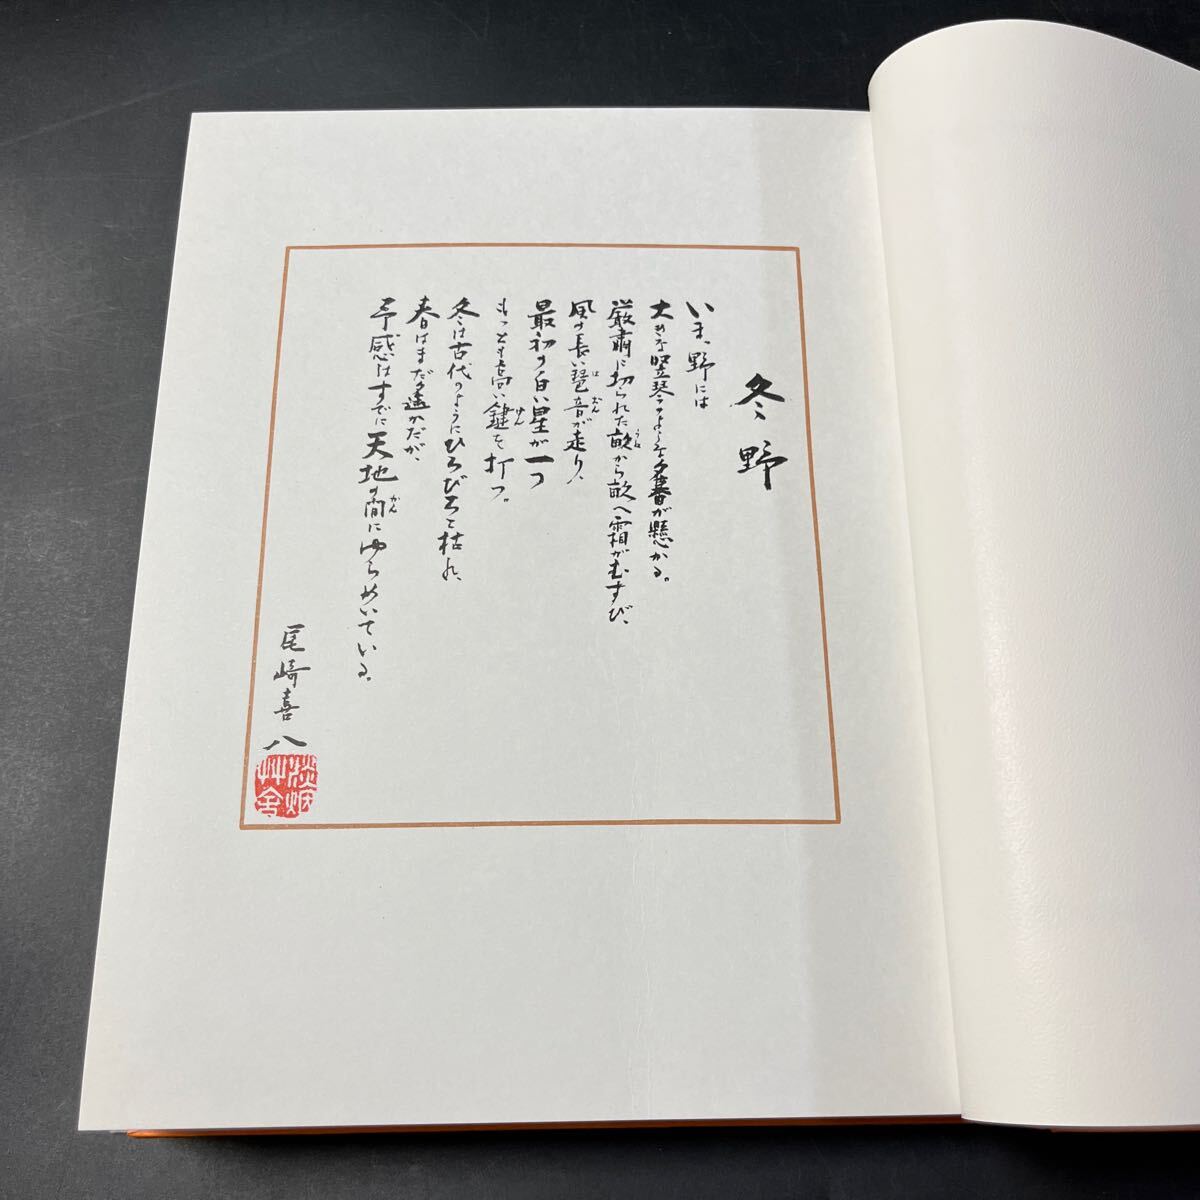 冬野
いま、野には
大きな竪琴のような夕暮が懸かる。
厳粛に切られた畝から畝へ霜がむすび、
風の長い琶音が走り、
最初の白い星が一つ
もっとも高い鍵を打つ。
冬は古代のようにひろびろと枯れ、
春はまだ遙かだが、
予感はすでに天地の間にゆらめいている。
尾崎喜八